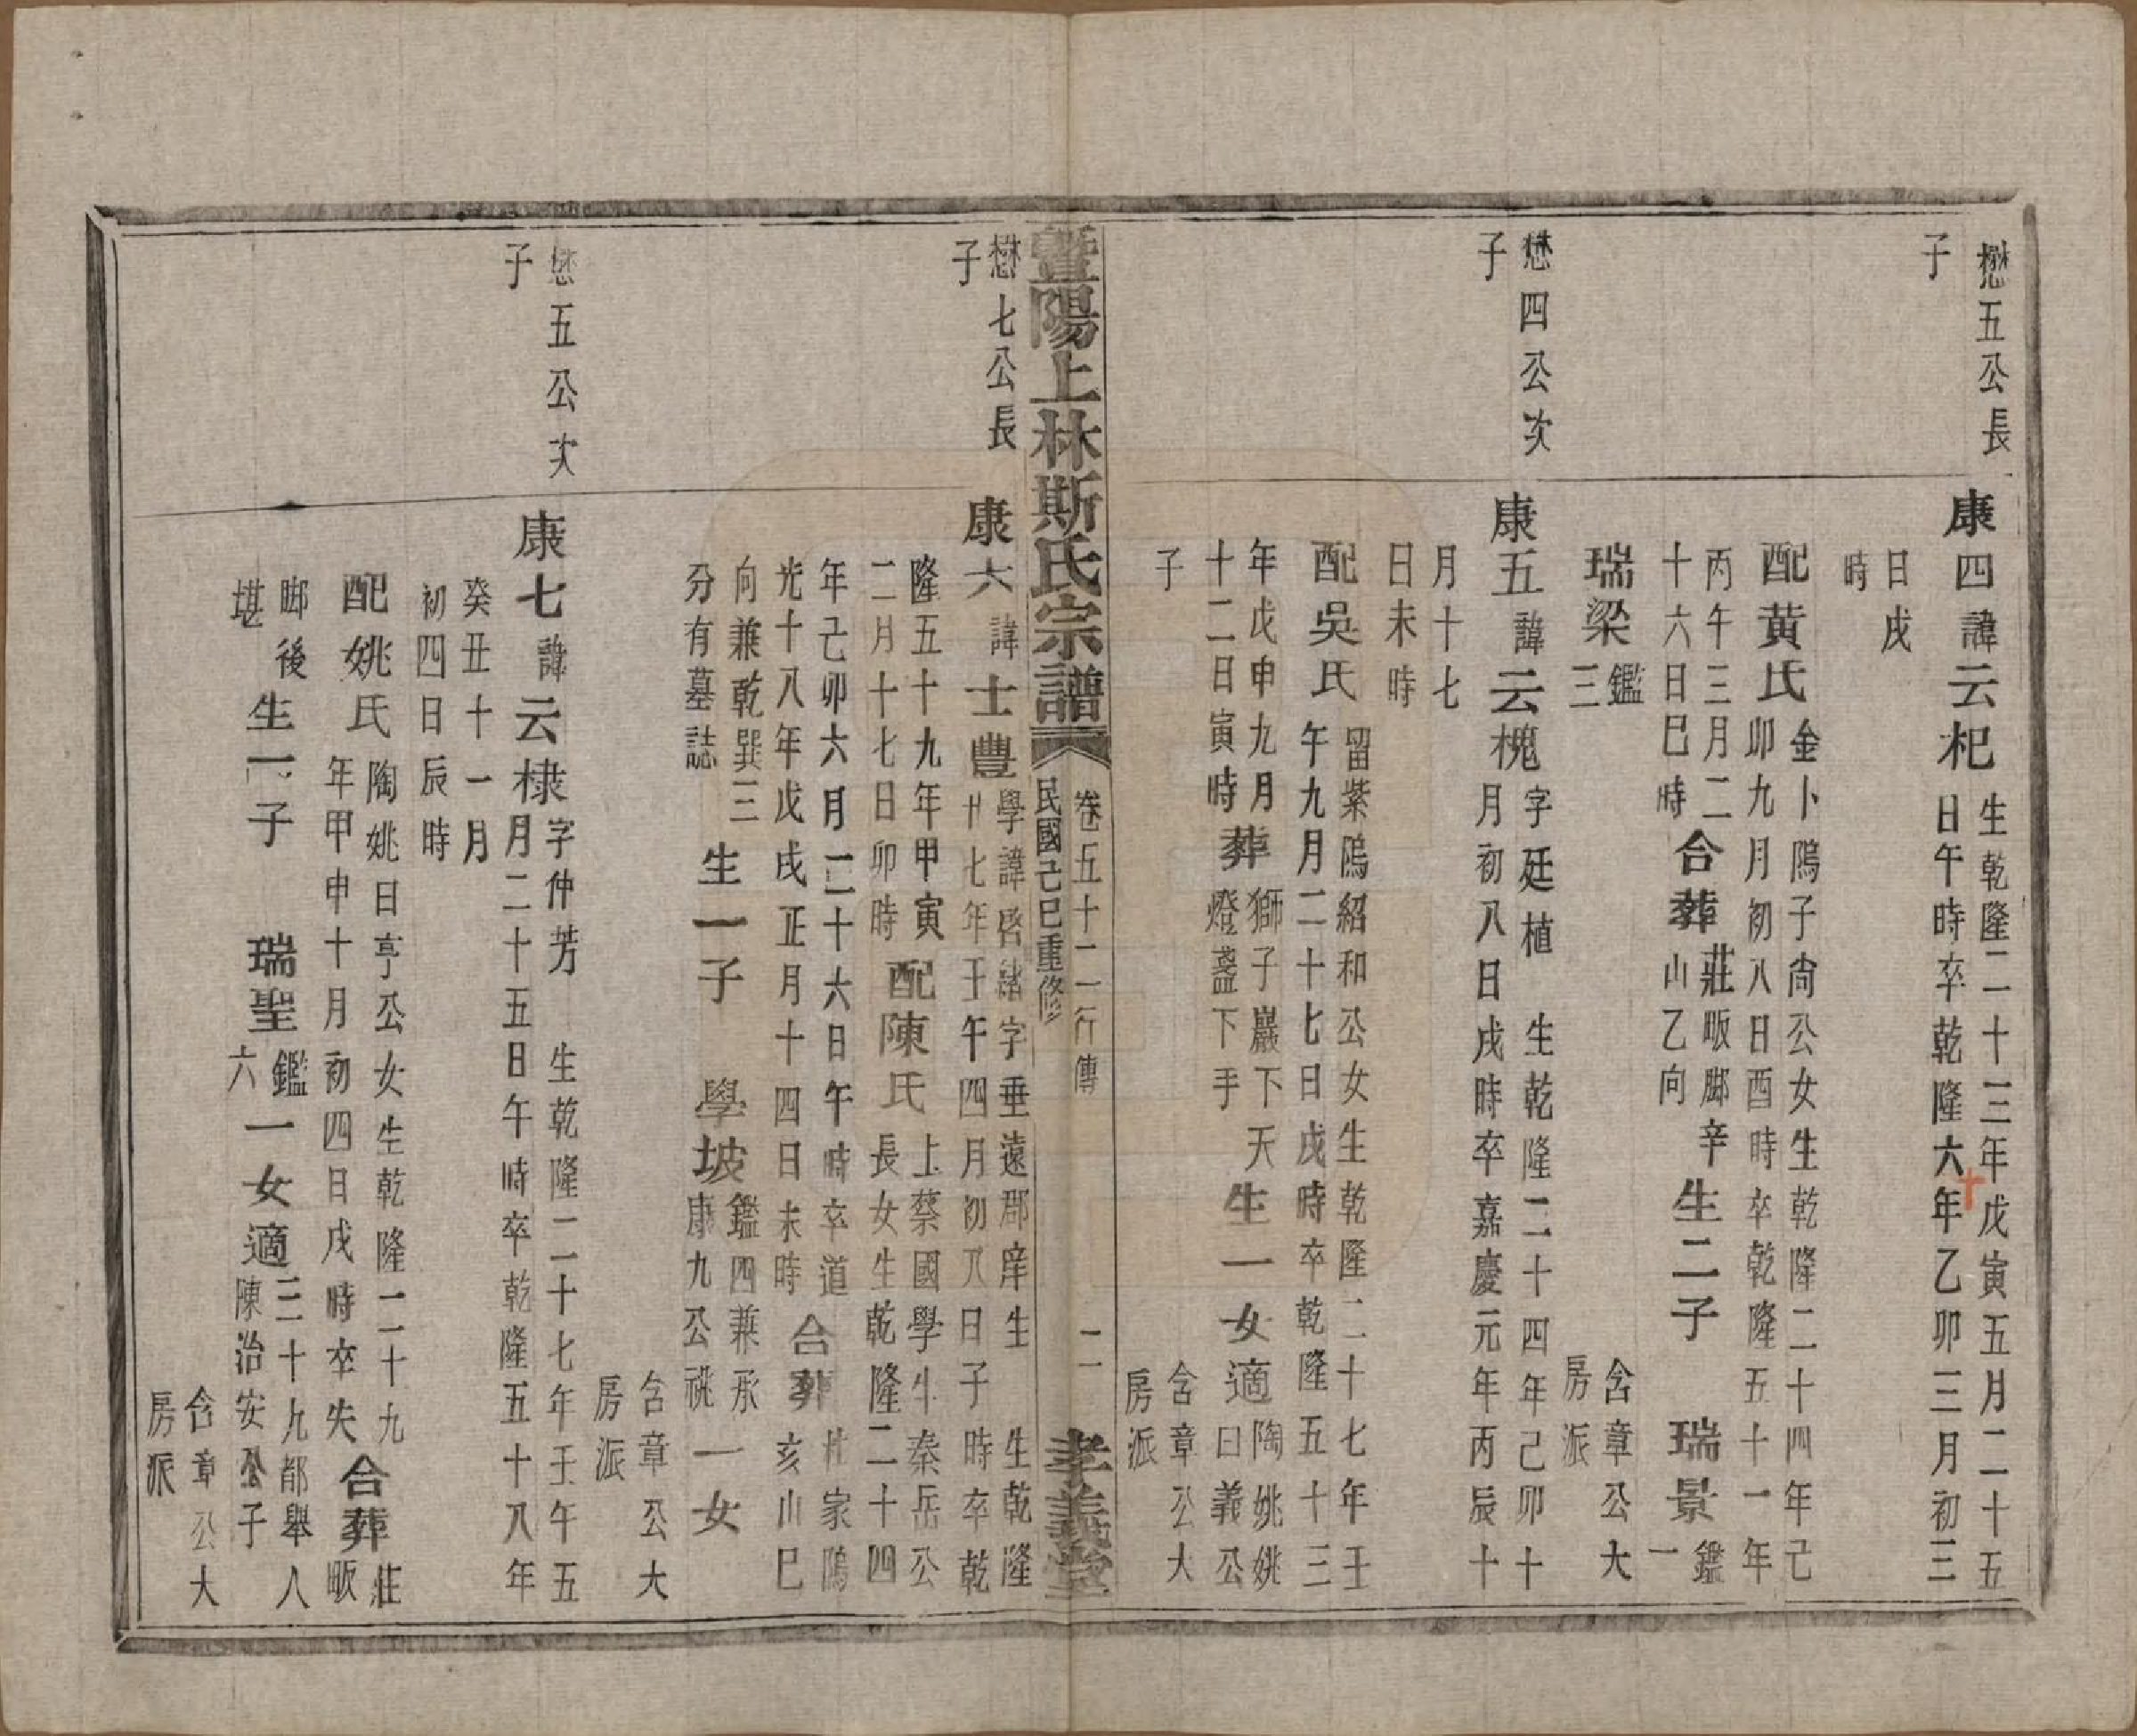 懋五公長
子
康四諱云杞
生乾隆二十三年戊寅五月二十五
日午時卒乾隆六十年乙卯三月初三
日戌
時
配黃氏
金卜隖子尙公女生乾隆二十四年己
卯九月初八日酉時卒乾隆五十一年
丙午三月二
十六日巳時
合葬
莊畈脚辛
山乙向
生二子
瑞景
鑑
一
瑞梁
鑑
三
含章公大
房派
懋四公次
子
康五諱云槐
字廷植
生乾隆二十四年己卯十
月初八日戌時卒嘉慶元年丙辰十
月十七
日未時
配吳氏
留紫隖紹和公女生乾隆二十七年壬
午九月二十七日戌時卒乾隆五十三
年戊申九月
十二日寅時
葬
獅子巖下天
燈盞下手
生一女適
陶姚姚
曰義公
子
含章公大
房派
暨陽上林斯氏宗譜
卷五十二行傳
民國己巳重修
二
孝義堂
懋七公長
子
康六諱士豊
學諱啓緒字垂遠郡庠生
生乾隆
廿七年壬午四月初八日子時卒乾
隆五十九年甲寅
二月十七日卯時
配陳氏
上蔡國學生秦岳公
長女生乾隆二十四
年己卯六月二十六日午時卒道
光十八年戊戌正月十四日未時
合葬
杜家隖
亥山巳
向兼乾巽三
分有墓誌
生一子
學坡
鑑四兼承
康九公祧
一女
含章公大
房派
懋五公次
子
康七諱云棣
字仲芳
生乾隆二十七年壬午五
月二十五日午時卒乾隆五十八年
癸丑十一月
初四日辰時
配姚氏
陶姚日亨公女生乾隆二十九
年甲申十月初四日戌時卒失
合葬
莊
畈
脚後
堪
生一子
瑞聖
鑑
六
一女適
二十九都舉人
陳治安公子
含章公大
房派